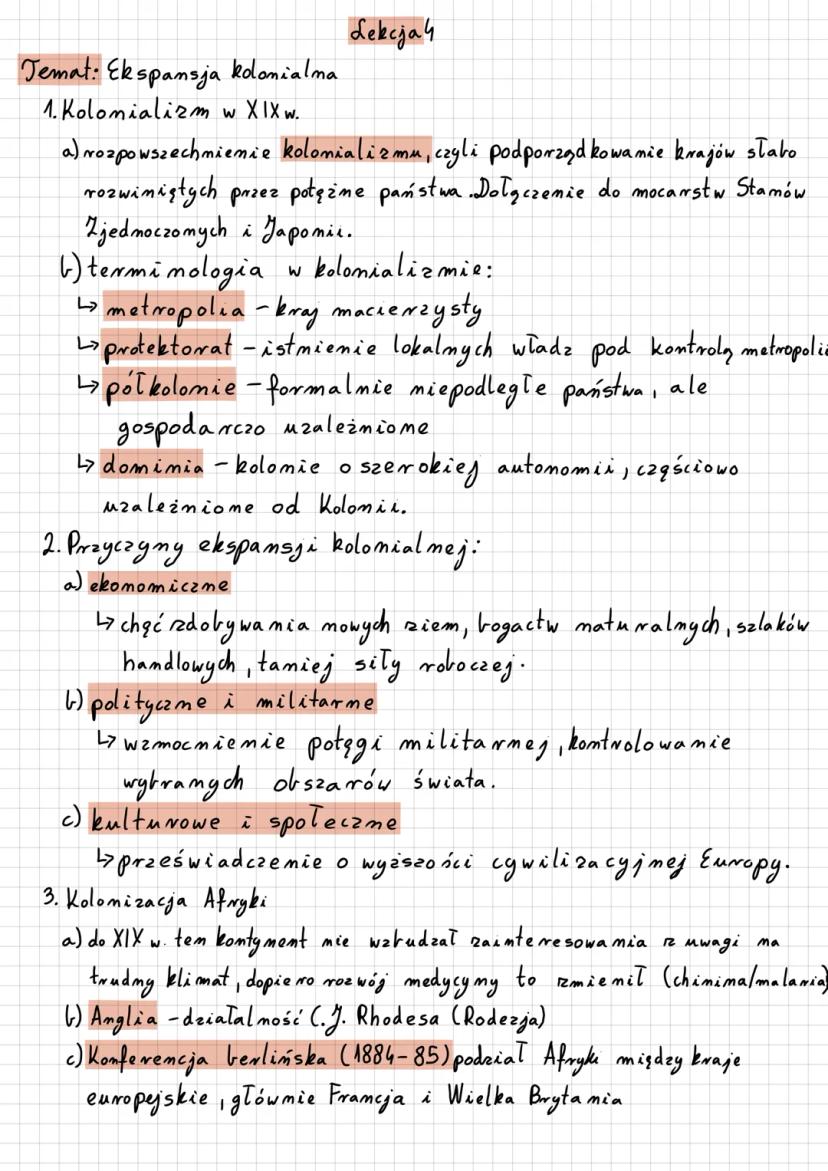 Lekcja 4
Temat: Ekspansja kolonialna
1. Kolonializm w XIX w.
a) rozpowszechnienie kolonializmu, czyli podporządkowanie krajów słabo
rozwiniętych przez potężne państwa. Dołączenie do mocarstw Stanów
Zjednoczonych i Japonii.
b) terminologia w kolonializmie:
↳ metropolia - kraj macierzysty
↳ protektorat - istnienie lokalnych władz pod kontrolą metropolii
↳ półkolonie - formalnie niepodległe państwa, ale
gospodarczo uzależnione
↳ dominia - kolonie o szerokiej autonomii, częściowo
uzależnione od Kolonii.
2. Przyczyny ekspansji kolonialnej:
a) ekonomiczne
↳ chęć zdobywania nowych ziem, bogactw naturalnych, szlaków
handlowych, taniej siły roboczej.
b) polityczne i militarne
↳ wzmocnienie potęgi militarnej, kontrolowanie
wybranych obszarów świata.
c) kulturowe i społeczne
↳ przeświadczenie o wyższości cywilizacyjnej Europy.
3. Kolonizacja Afryki
a) do XIX w. ten kontynent nie wzbudzał zainteresowania z uwagi na
trudny klimat, dopiero rozwój medycyny to zmienił (chinina/malaria)
b) Anglia - działalność C.J. Rhodesa (Rodezja)
c) Konferencja berlińska (1884-85) podział Afryki między kraje
europejskie, głównie Francja i Wielka Brytania